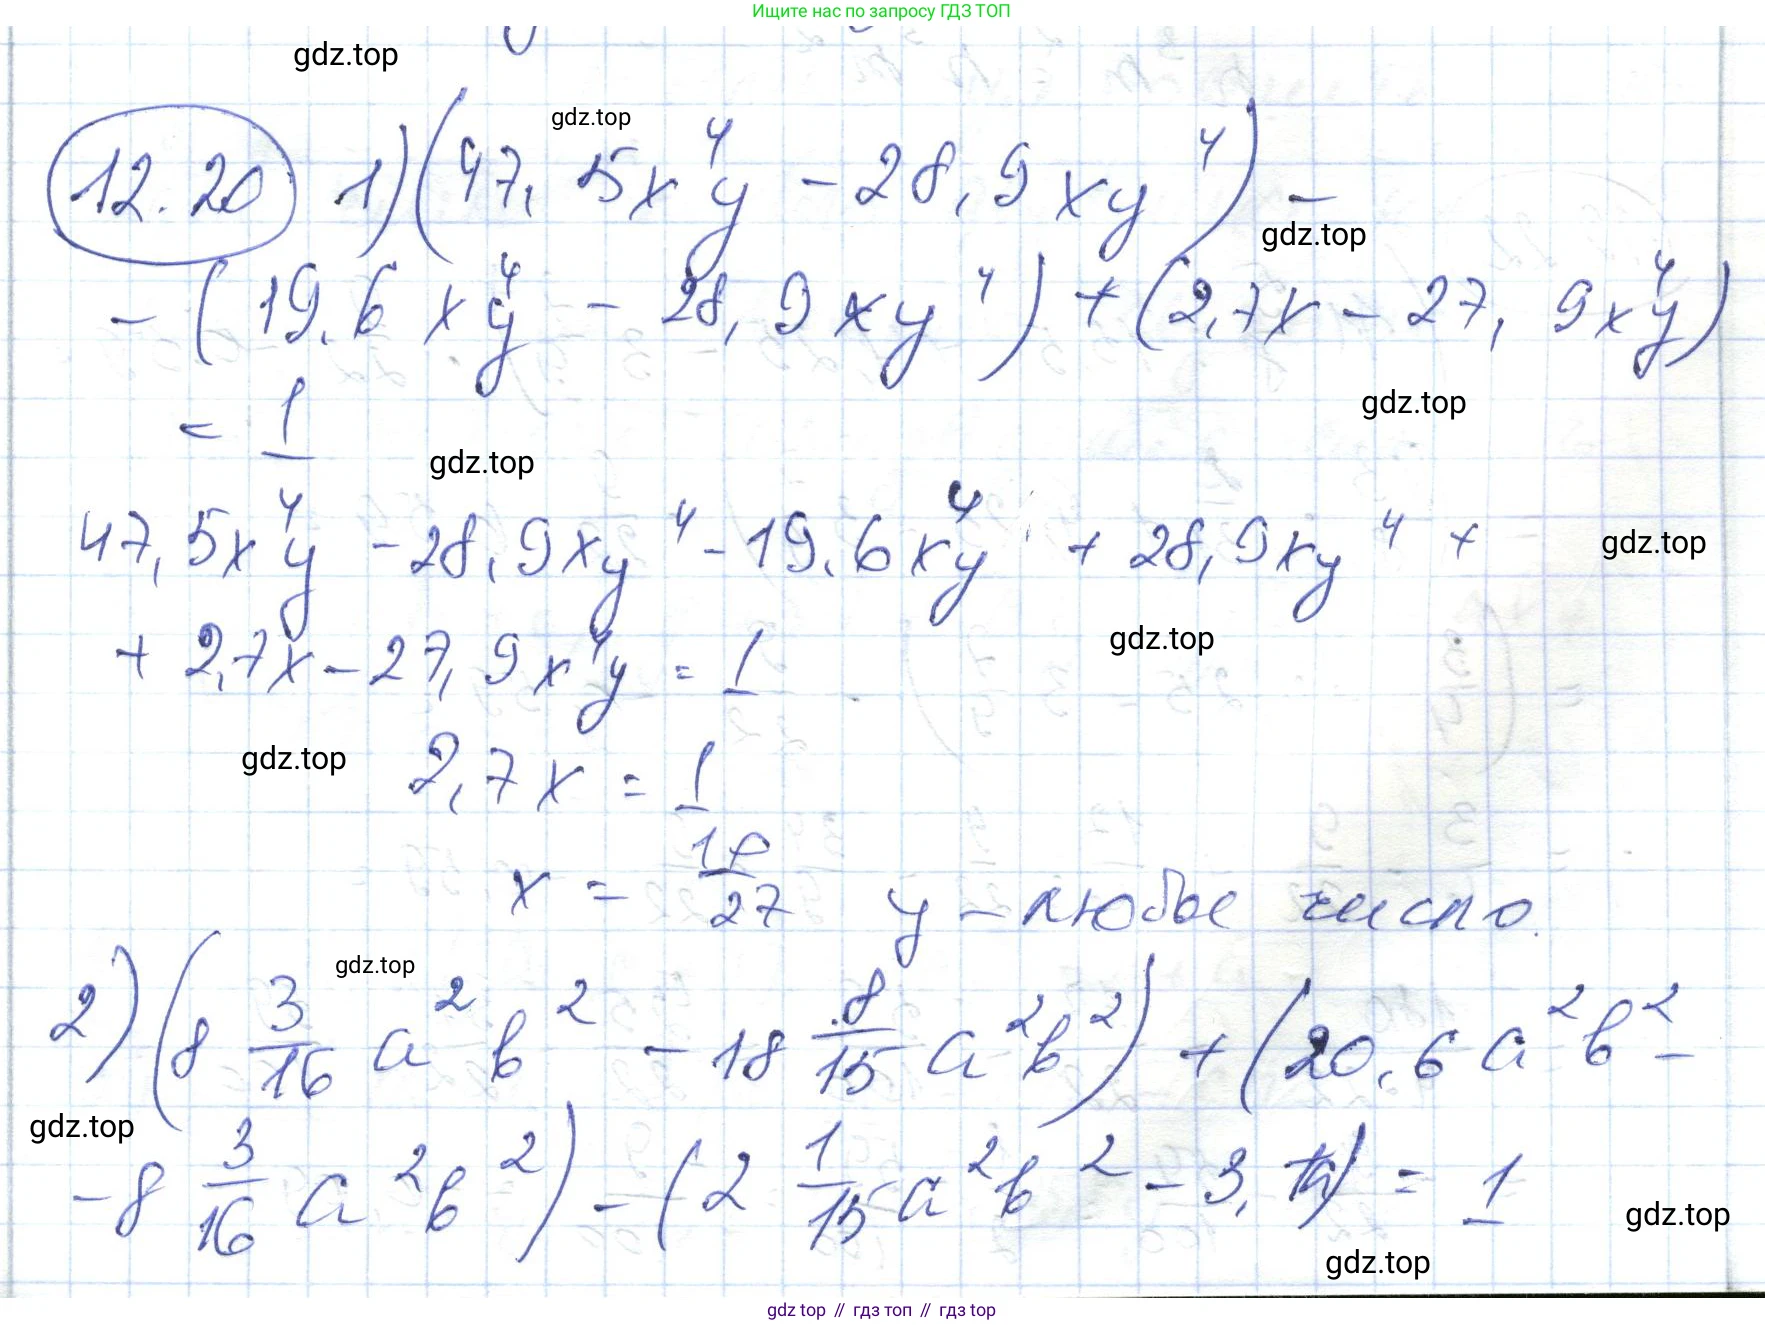 Ищите нас по запросу ГДЗ ТОП
gdz.top
gdz.top
12.20 1) (47,5x⁴y - 28,9xy⁴) -
gdz.top
- (19,6x⁴y - 28,9xy⁴) + (2,7x - 27,9x⁴y)
gdz.top
= 1
gdz.top
47,5x⁴y - 28,9xy⁴ - 19,6x⁴y + 28,9xy⁴ +
gdz.top
+ 2,7x - 27,9x⁴y = 1
gdz.top
gdz.top
2,7x = 1
x = 10/27 y - любое число.
gdz.top
2) (8 3/16 a²b² - 18 8/15 a²b²) + (20,6a²b² -
gdz.top
- 8 3/16 a²b²) - (2 1/15 a²b² - 3,7a) = 1
gdz.top
gdz.top
gdz top // гдз топ // гдз top